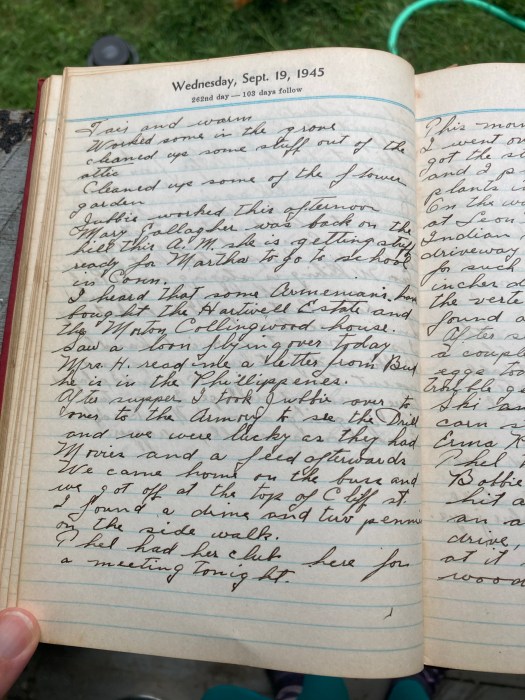 Wednesday, Sept. 19, 1945
262nd day — 103 days follow
Fair and warm
Worked some in the grove
cleaned up some stuff out of the
attic
Cleaned up some of the flower
garden
worked this afternoon
Mary Gallagher was back on the
hill this A.M. she is getting stuff
ready for Martha to go to school
in Conn.
I heard that some Armenians have
bought the Hartwell Estate and
the Morton Collingwood house.
Saw a loon flying over today
Mrs. H. read me a letter from Bud
he is in the Phillippenes.
After supper I took over to
over to the Armory to see the Drill
and we were lucky as they had
Movies and a feed afterwards
We came home on the buss and
we got off at the top of Cliff st.
I found a dime and two pennies
on the side walk.
Phel had her club here for
a meeting tonight.
This morn
I went ov
got the
and I p
plants
On the wa
at Leon
Indian
driveway
for such
the verte
found a
After s
a coupl
eggs too
trouble g
Ski
corn s
Erma
Phel
Bobbie
hit a
an a
drive,
at it
wood